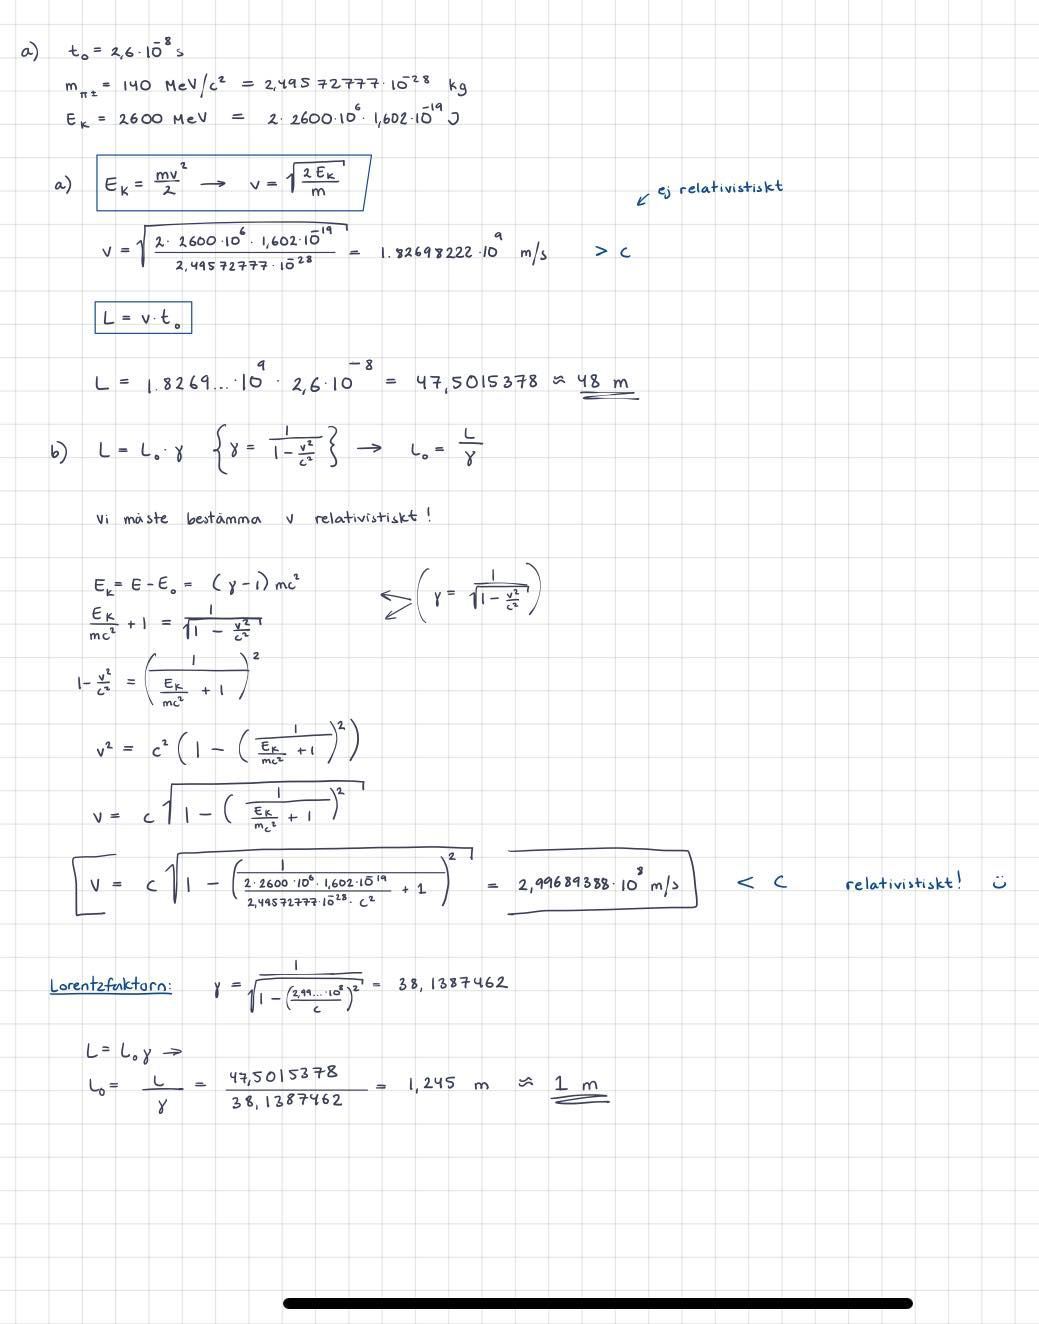 a) t₀ = 2,6·10⁻⁸ s
m_π± = 140 MeV/c² = 2,49572777·10⁻²⁸ kg
E_K = 2600 MeV = 2·2600·10⁶·1,602·10⁻¹⁹ J
a) E_K = mv²/2 → v = √(2E_K/m)
ej relativistiskt
v = √((2·2600·10⁶·1,602·10⁻¹⁹)/(2,49572777·10⁻²⁸)) = 1.82698222·10⁹ m/s > c
L = v·t₀
L = 1.8269...·10⁹ · 2,6·10⁻⁸ = 47,5015378 ≈ 48 m
b) L = L₀·γ {γ = 1/(1 - v²/c²)} → L₀ = L/γ
Vi måste bestämma v relativistiskt!
E_K = E - E₀ = (γ-1)mc² (γ = 1/√(1 - v²/c²))
E_K/mc² + 1 = 1/√(1 - v²/c²)
1 - v²/c² = (1/(E_K/mc² + 1))²
v² = c²(1 - (1/(E_K/mc² + 1))²)
v = c√(1 - (1/(E_K/mc² + 1))²)
v = c√(1 - (1/((2·2600·10⁶·1,602·10⁻¹⁹)/(2,49572777·10⁻²⁸·c²) + 1))²) = 2,99689388·10⁸ m/s < c relativistiskt! ü
Lorentzfaktorn: γ = 1/√(1 - (2,99...·10⁸/c)²) = 38,1387462
L = L₀γ →
L₀ = L/γ = 47,5015378/38,1387462 = 1,245 m ≈ 1 m